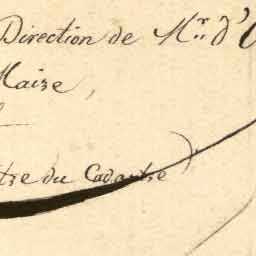 Direction de Mr. d'
Maire,
tre du Cadastre)